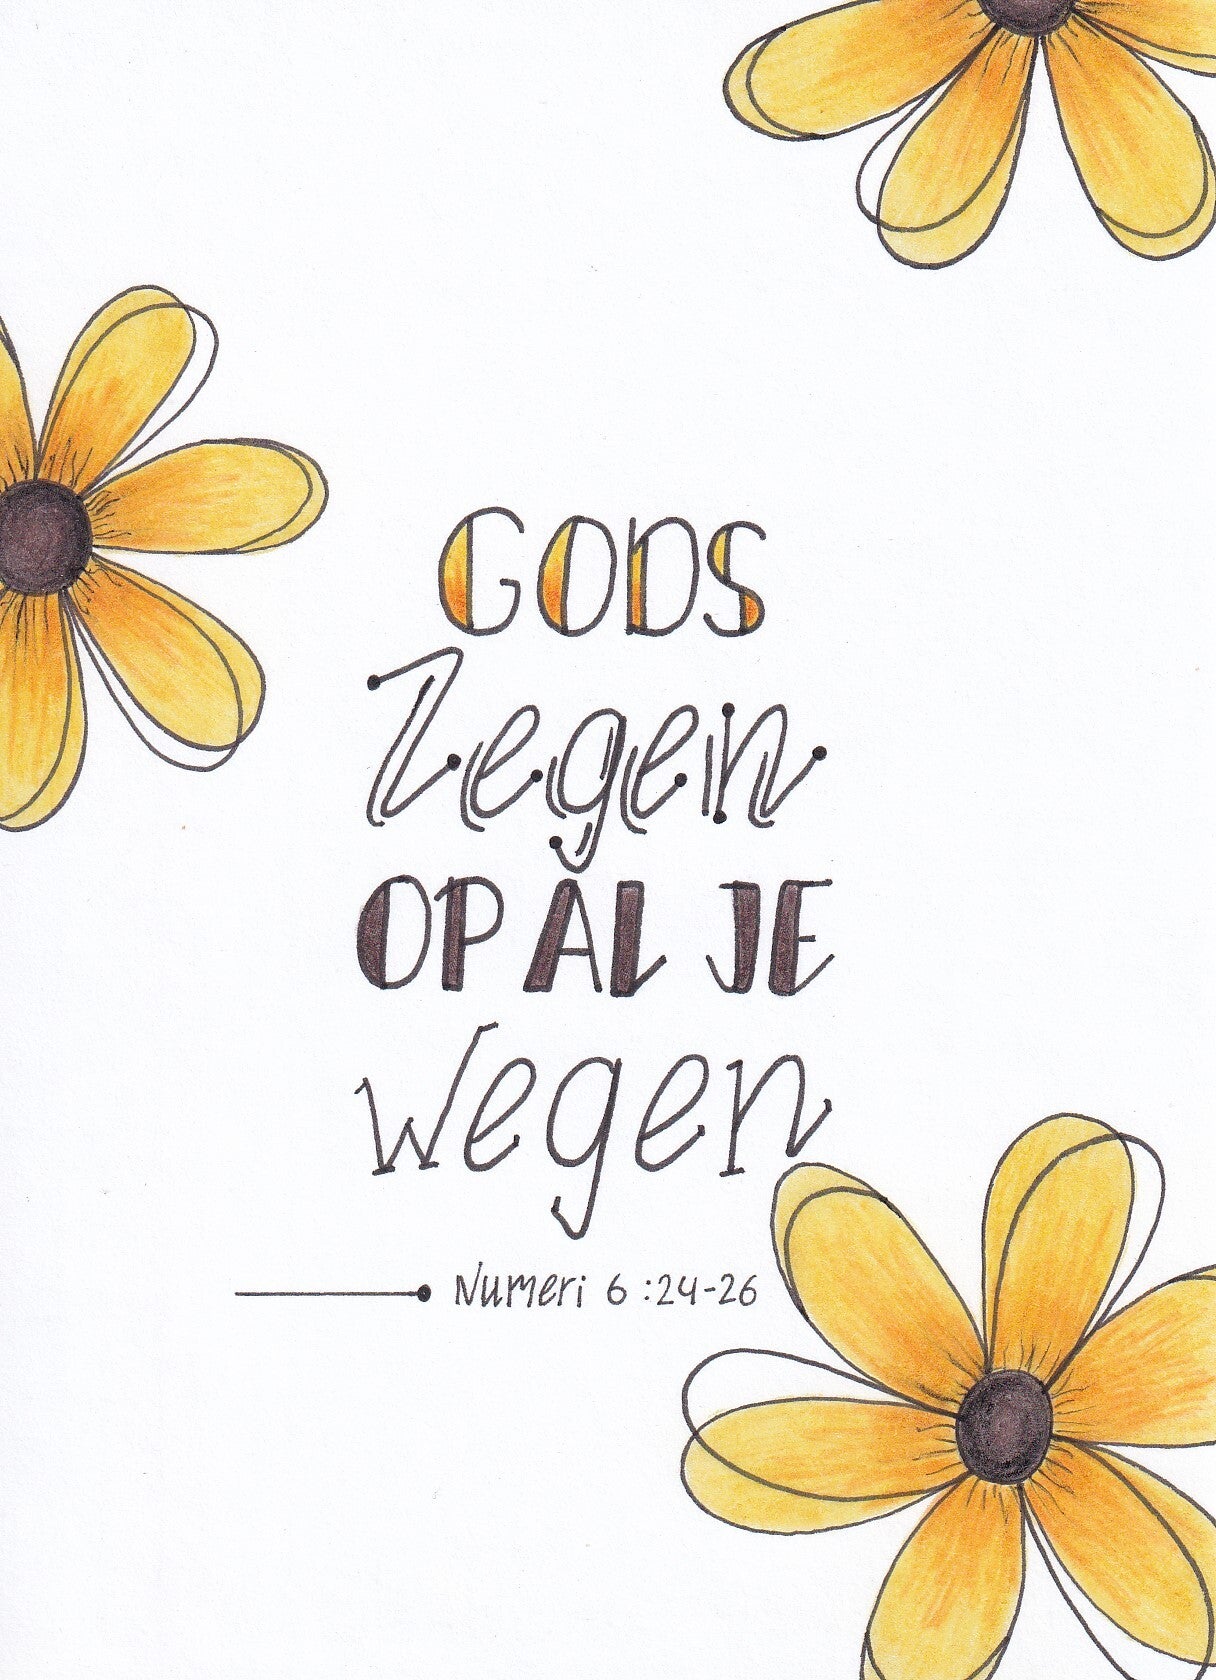 GODS
Zegen
OP AL JE
Wegen
Numeri 6:24-26